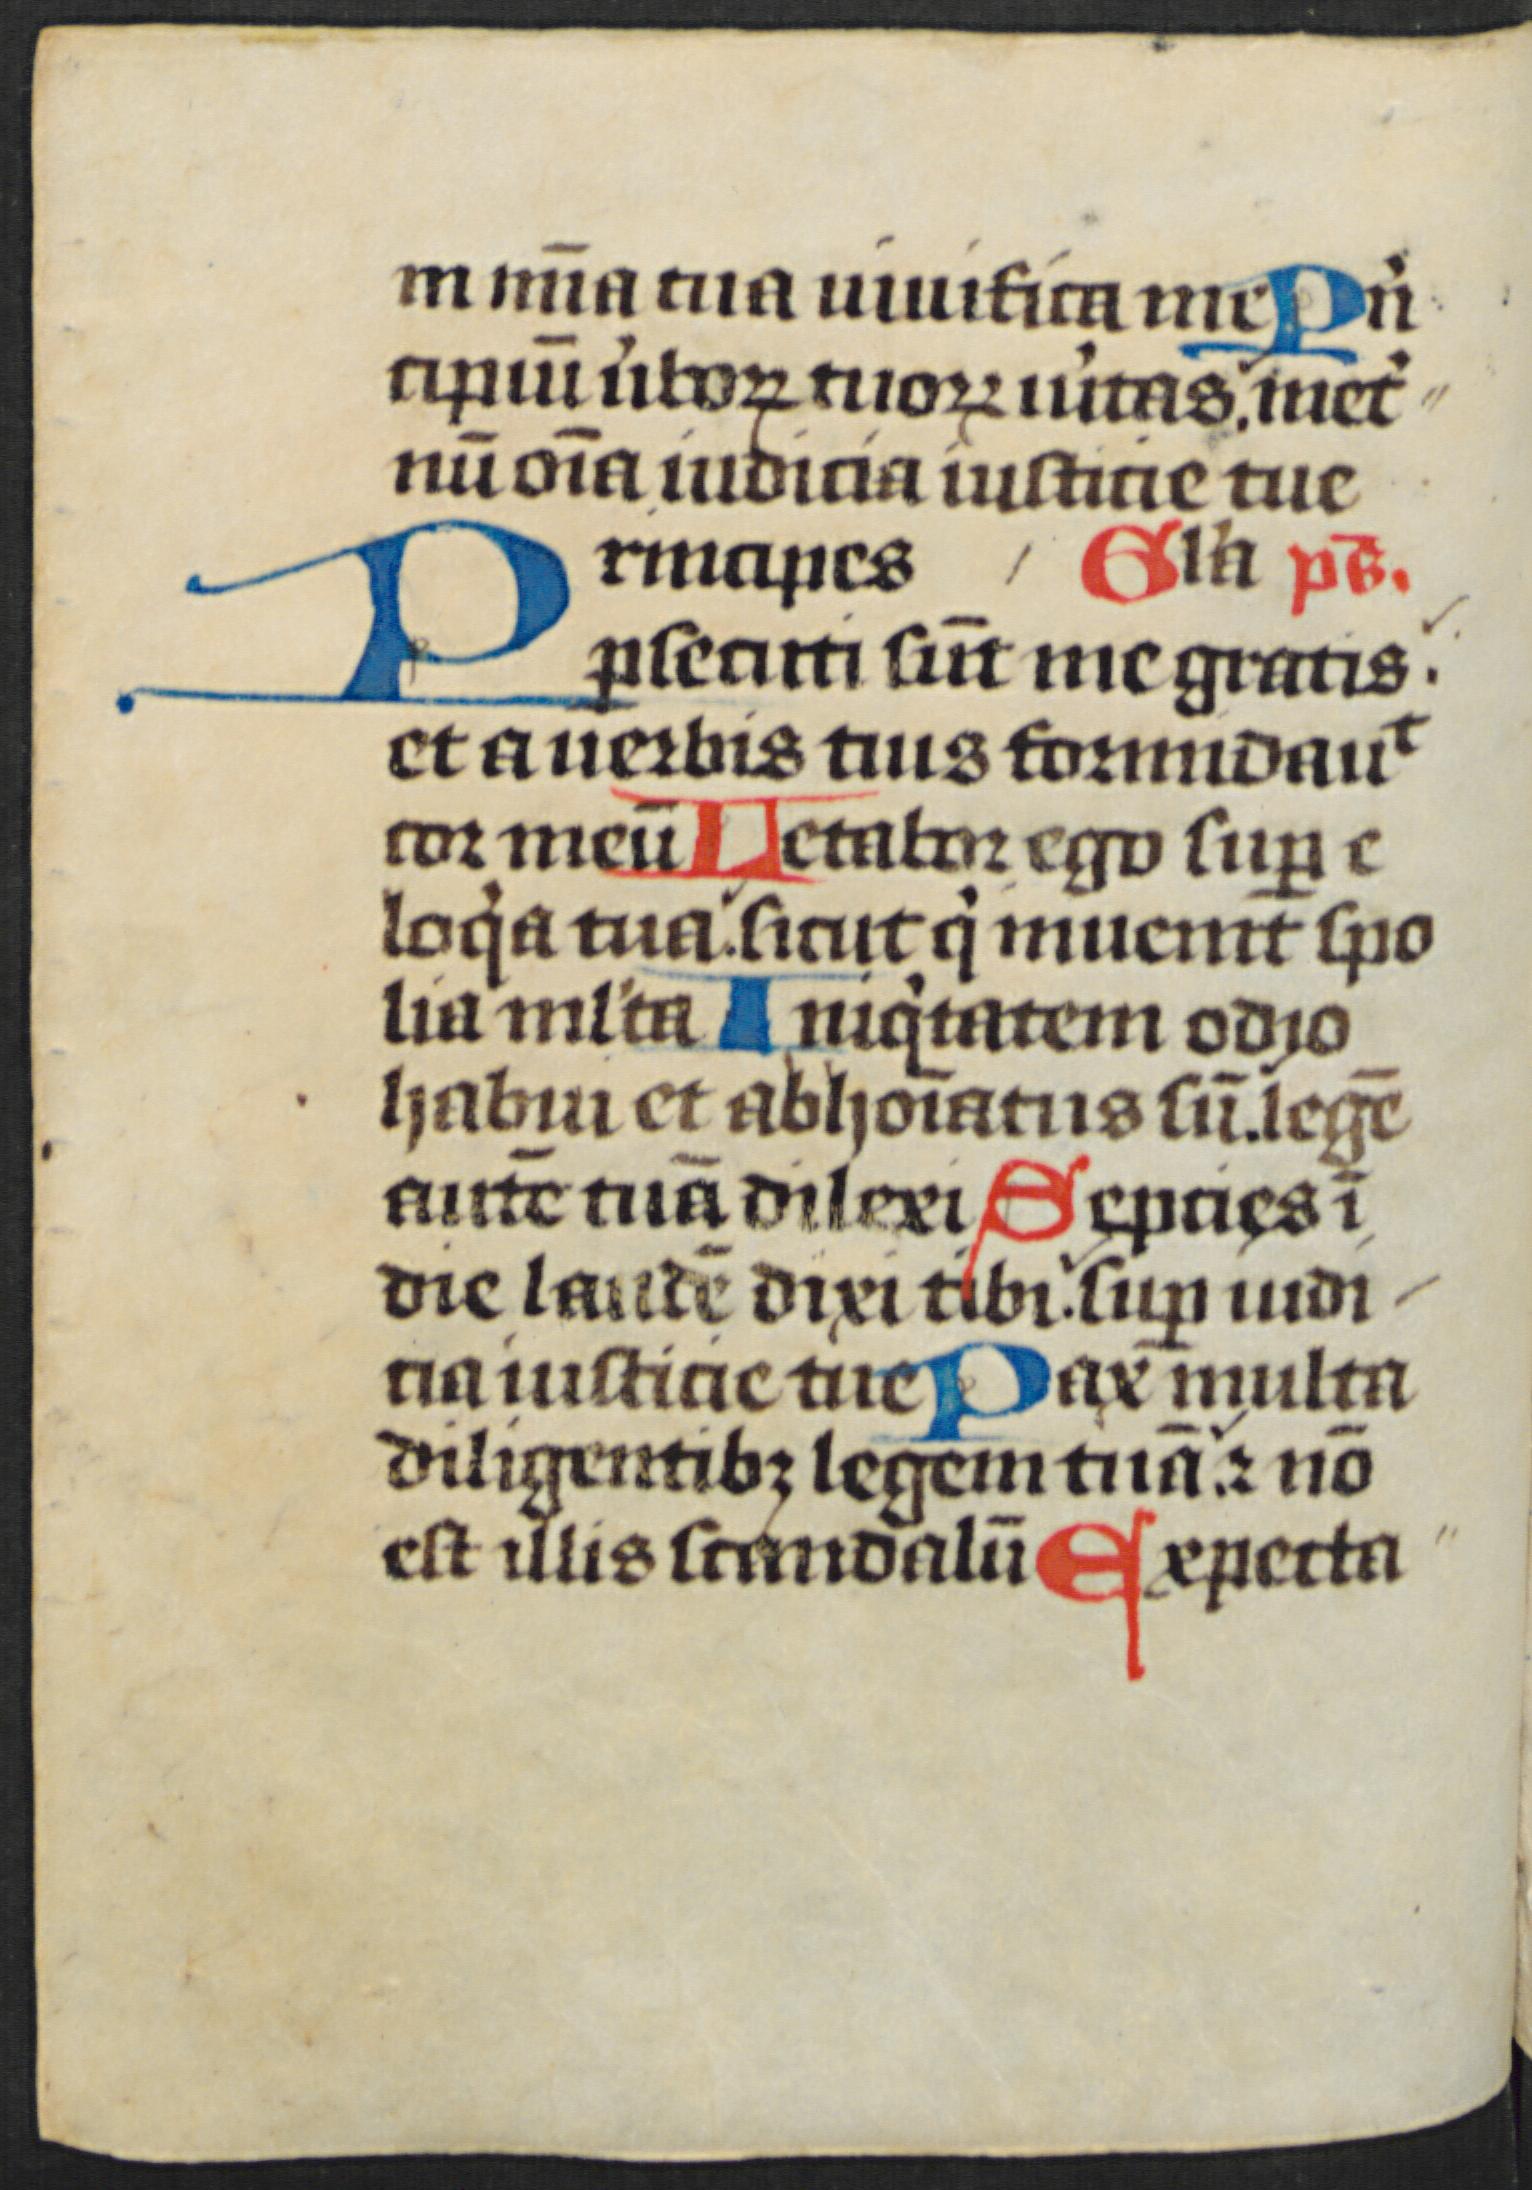 in mīa tua uiuifica me Pn̾
cipiū u̾boꝝ tuoꝝ u̾itas. inet̾
nū oīa iudicia iusticie tue
Principes Glīa ps̄.
ꝑsecuti sūt me gratis.
et a uerbis tuis formidauᵗ
cor meū Letabor ego suꝑ e
loqⁱa tua. sicut qⁱ inuenit spo
lia ml̾ta Iniqⁱtatem odio
habui et abhoīatus sū. legē
autē tuā dilexi Sepcies ī
die laudē dixi tibi. suꝑ iudi
cia iusticie tue Pax multa
diligentibꝫ legem tuā. ⁊ nō
est illis scandalū Expecta